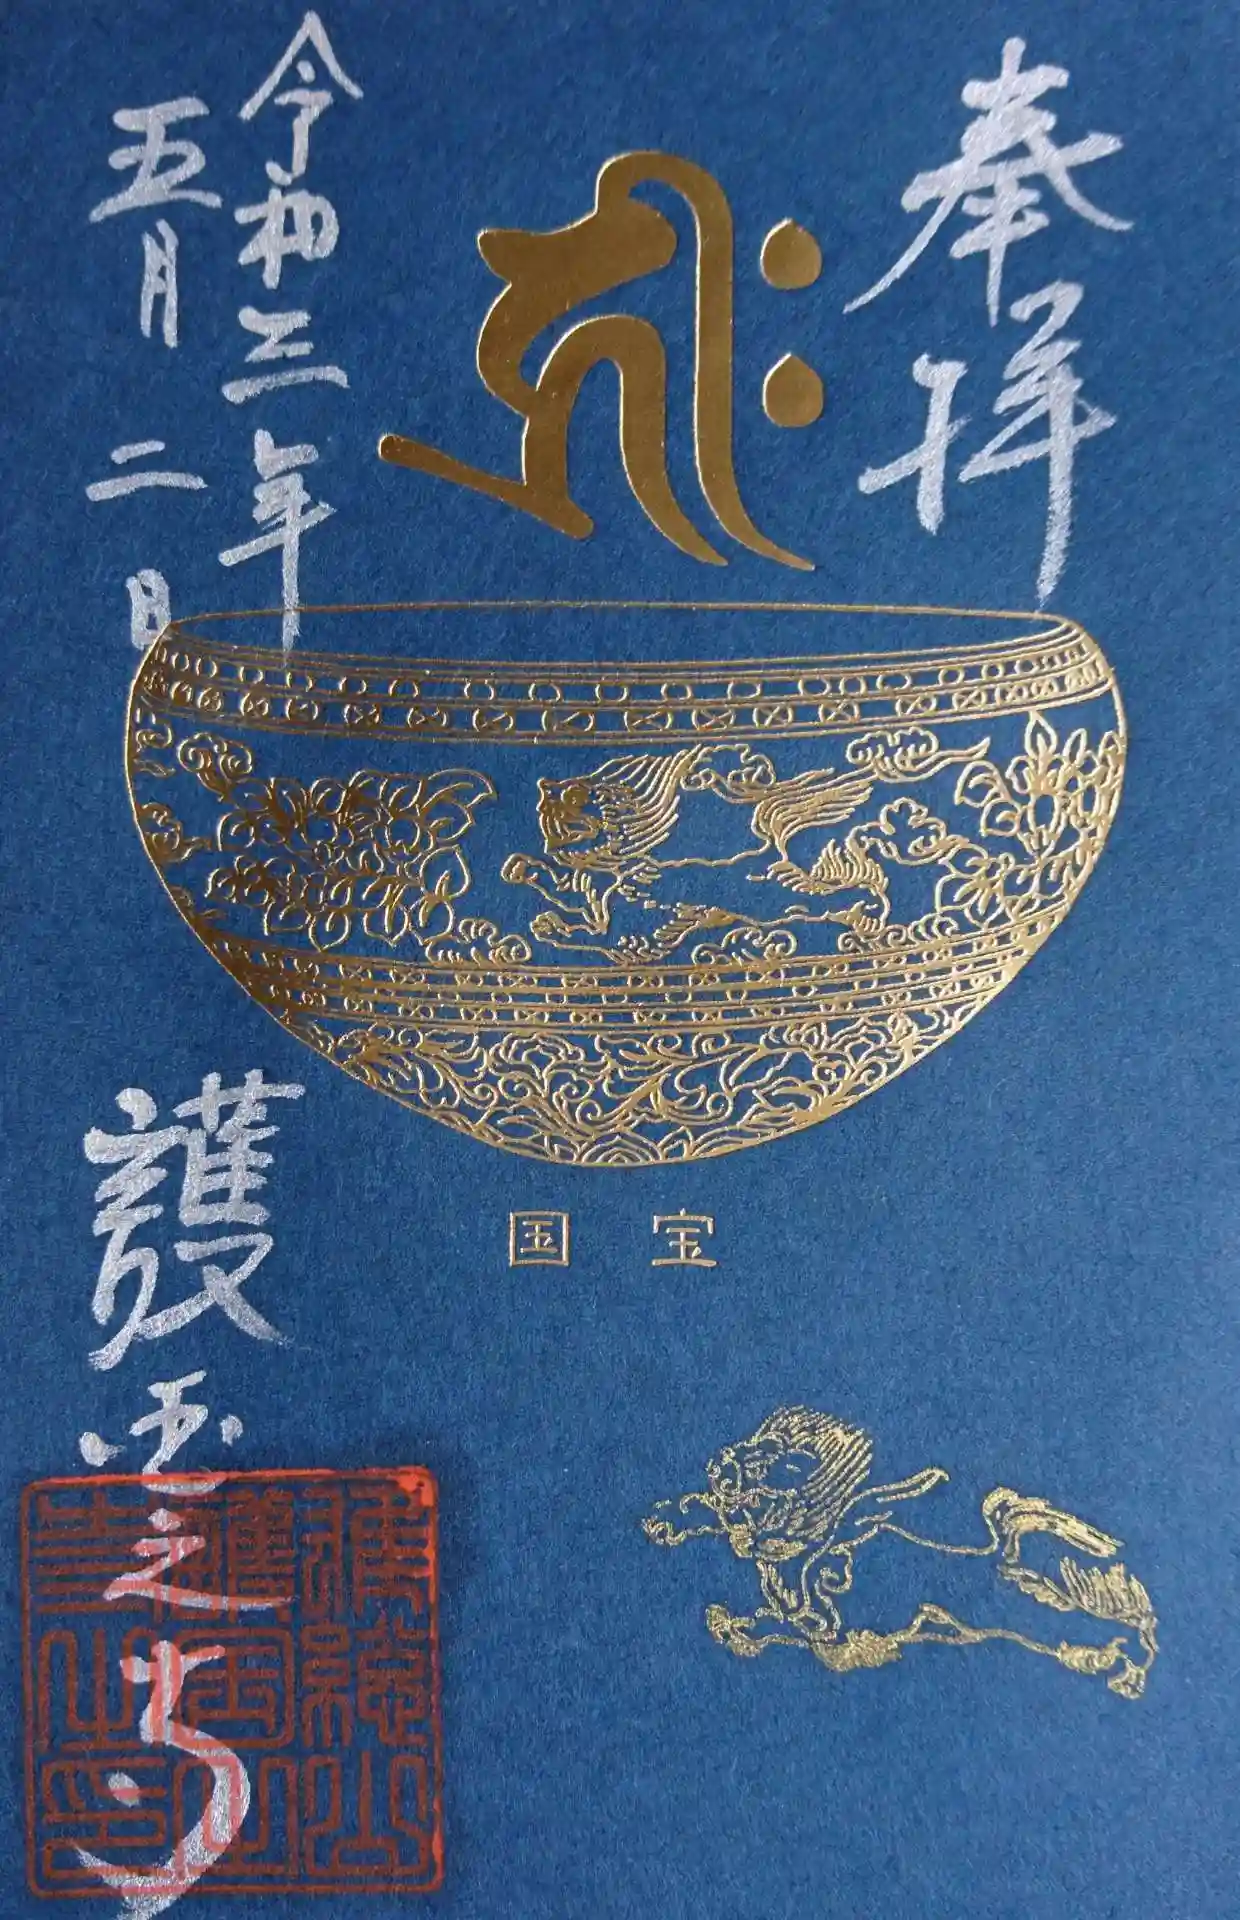 奉拝
𑖮𑖿𑖨𑖱𑖾
令和三年
五月二日
国宝
護国之寺